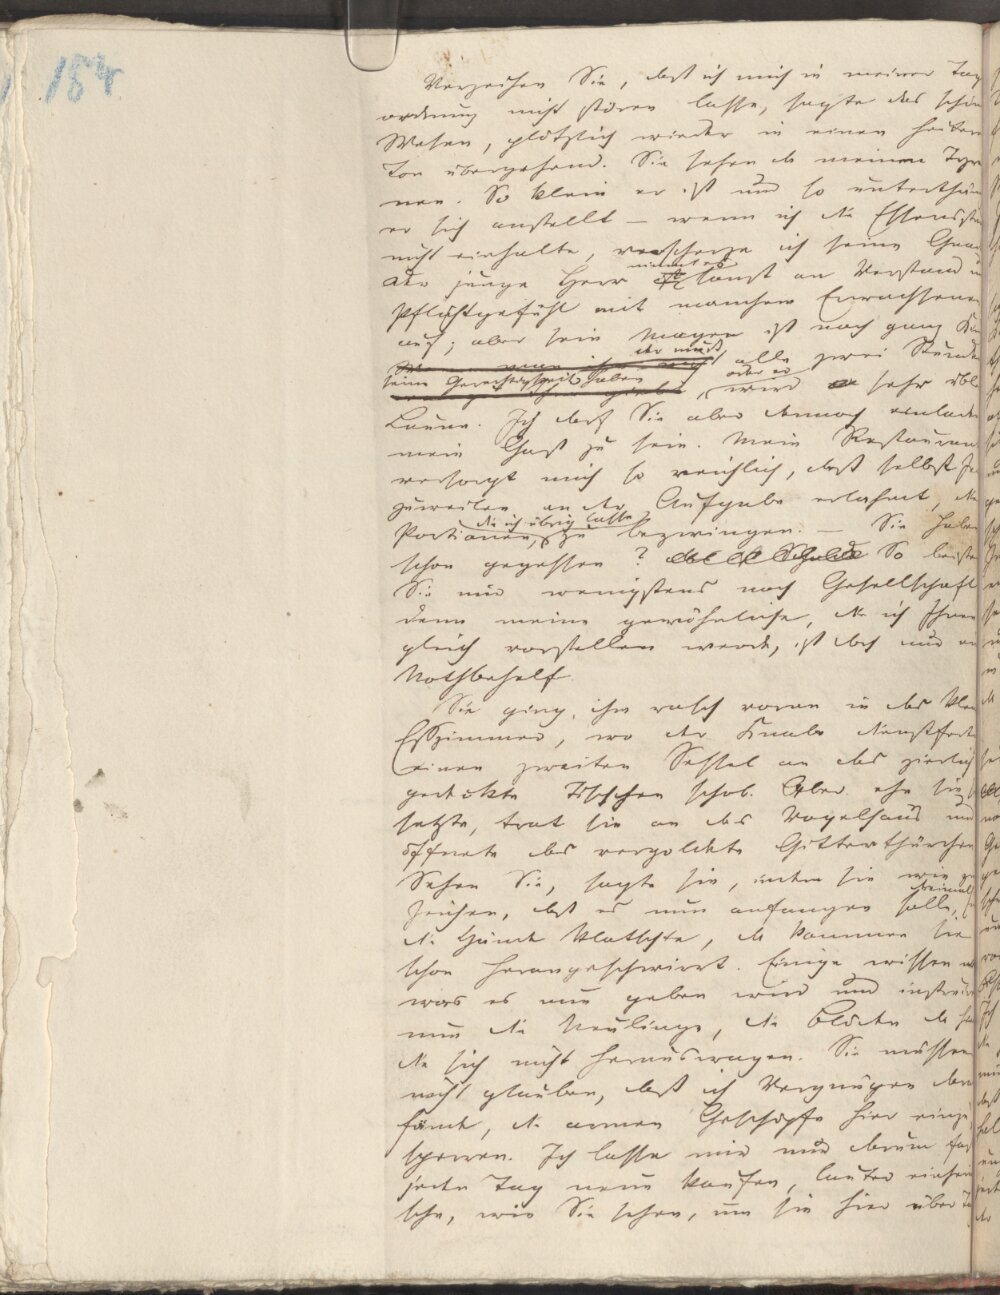 184
Verzeihen Sie, daß ich mich in meiner Tag
ordnung nicht stören lasse, sagte das schön
Wesen, plötzlich wieder in einen heitern
Ton übergehend. Sie sehen da meinen Tyra
nen. So klein er ist und so unterthän
er sich anstellt – wenn ich die Essensstun
nicht einhalte, verscherze ich seine Gnad
Der junge Herr
nimmt es
sonst an Verstand u
Pflichtgefühl mit manchem Erwachsenen
auf; aber sein Magen ist noch ganz Kin
der muß
alle zwei Stunde
seine Gerechtigkeit haben
oder er
wird sehr übl
Laune. Ich darf Sie aber dennoch einlade
mein Gast zu sein. Mein Restauran
versorgt mich so reichlich, daß selbst Je
zuweilen an der Aufgabe erlahmt, die
Portionen,
die ich übrig lasse
zu bezwingen. – Sie haben
schon gegessen? So leiste
Sie mir wenigstens noch Gesellschaft
denn meine gewöhnliche, die ich Ihnen
gleich vorstellen werde, ist doch nur ein
Nothbehelf.
Sie ging ihm rasch voran in das klei
Eßzimmer, wo der Knabe dienstfert
einen zweiten Sessel an das zierlich
gedeckte Tischchen schob. Aber ehe sie s
setzte, trat sie an das Vogelhaus und
öffnete das vergoldete Gitterthürchen
Sehen Sie, sagte sie, indem sie wie zu
Zeichen, daß es nun anfangen solle,
dreimal
die Hände klatschte, da kommen sie
schon herangeschwirrt. Einige wissen
was es nun geben wird und instruir
nun die Neulinge, die blöden da
die sich nicht herauswagen. Sie müssen
nicht glauben, daß ich Vergnügen dara
fände, die armen Geschöpfe hier einzu
sperren. Ich lasse mir nur darum fas
jeden Tag neue kaufen, lauter einheim
sche, wie Sie sehen, um sie hier über